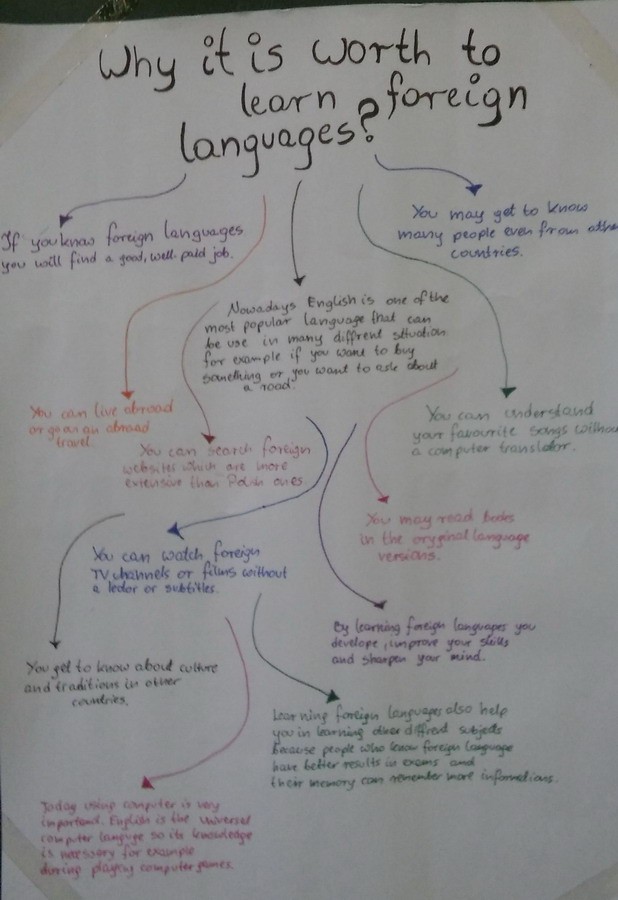 Why it is worth to
learn foreign
languages?
If you know foreign languages
you will find a good, well-paid job.
You may get to know
many people even from othe
countries.
Nowadays English is one of the
most popular language that can
be use in many diffrent situation
for example if you want to buy
something or you want to ask about
a road.
You can live abroad
or go on an abroad
travel.
You can understand
your favourite songs withou
a computer translator.
You can search foreign
websites which are more
extensive than Polish ones.
You may read books
in the oryginal language
versions.
You can watch foreign
TV channels or films without
a lector or subtitles.
By learning foreign languages you
develope, improve your skills
and sharpen your mind.
You get to know about culture
and traditions in other
countries.
Learning foreign languages also help
you in learning other diffrent subjects
because people who know foreign language
have better results in exams and
their memory can remember more informations.
Today using computer is very
important. English is the universal
computer languge so its knowledge
is necessary for example
durring playing computer games.